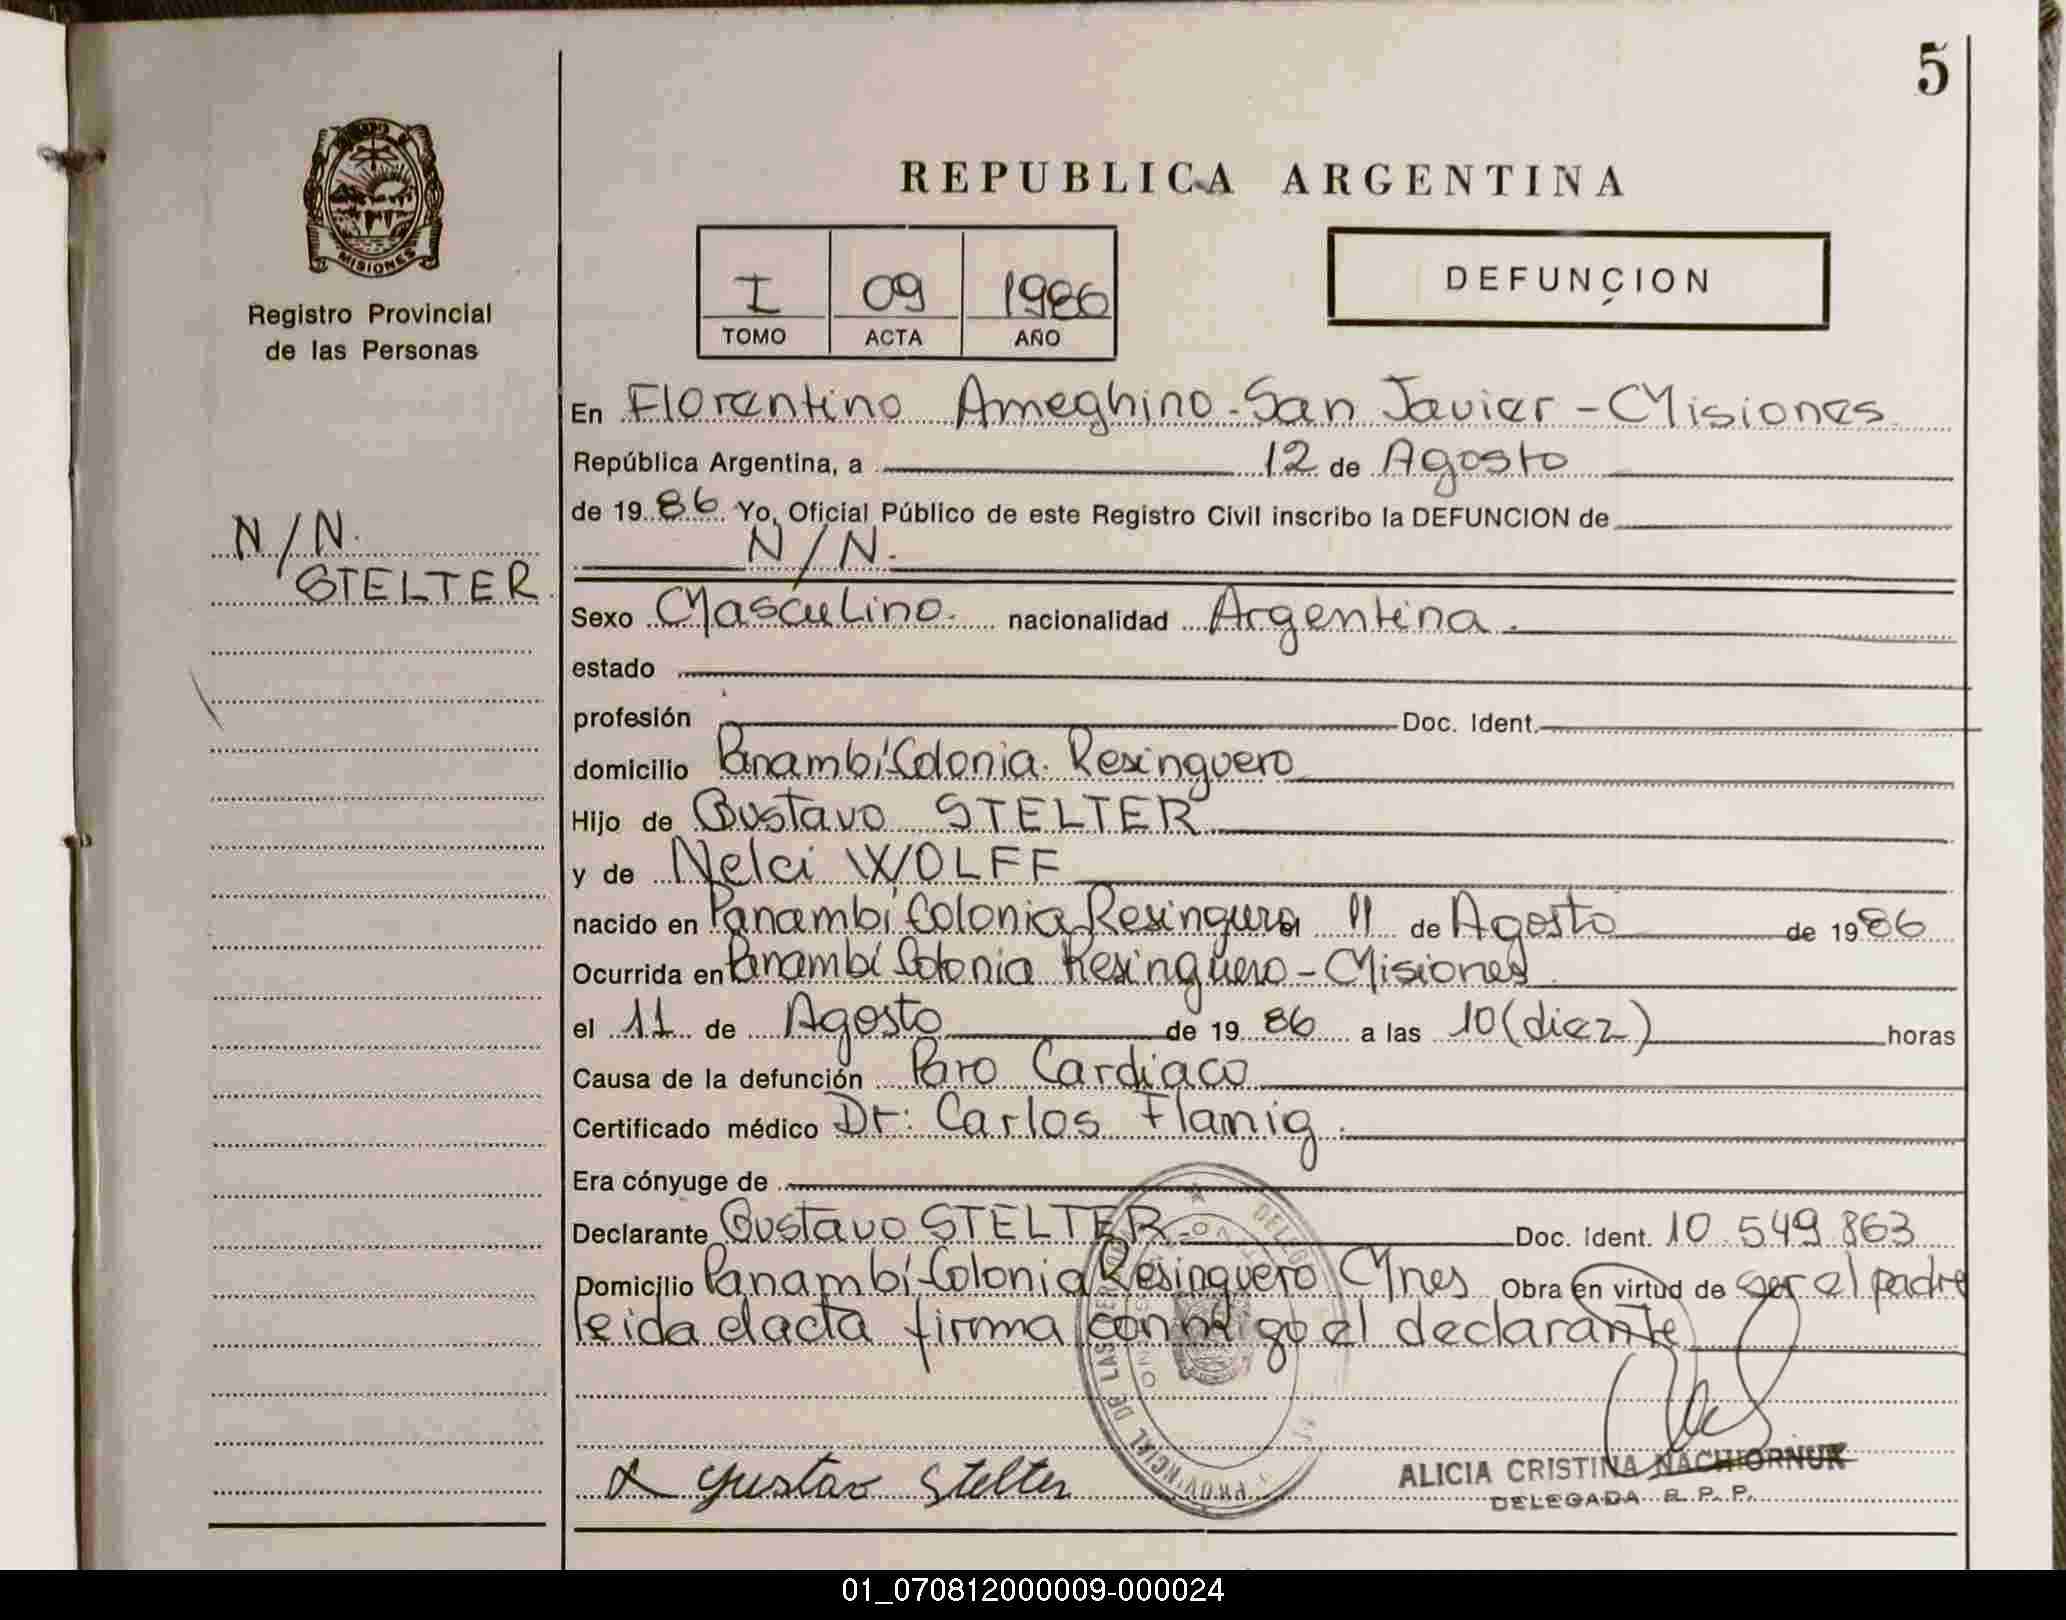 5
MISIONES
Registro Provincial
de las Personas
REPUBLICA ARGENTINA
I 09 1986
TOMO ACTA AÑO
DEFUNCION
N/N.
STELTER
En Florentino Ameghino - San Javier - Misiones
República Argentina, a 12 de Agosto
de 1986 Yo, Oficial Público de este Registro Civil inscribo la DEFUNCION de
N/N.
Sexo Masculino. nacionalidad Argentina.
estado
profesión Doc. Ident.
domicilio Panambí Colonia Resinguero
Hijo de Gustavo STELTER
y de Nelci WOLFF
nacido en Panambí Colonia Resinguero el 11 de Agosto de 1986
Ocurrida en Panambí Colonia Resinguero - Misiones
el 11 de Agosto de 1986 a las 10 (diez) horas
Causa de la defunción Paro Cardiaco
Certificado médico Dr: Carlos Flamig.
Era cónyuge de
Declarante Gustavo STELTER - Doc. Ident. 10.549.863
Domicilio Panambí - Colonia Resinguero Mnes Obra en virtud de ser el padre
leida elacta firma conmigo el declarante
PROVINCIAL DE LAS
Gustavo Stelter
ALICIA CRISTINA NACHIORNUK
DELEGADA R. P. P.
01_070812000009-000024